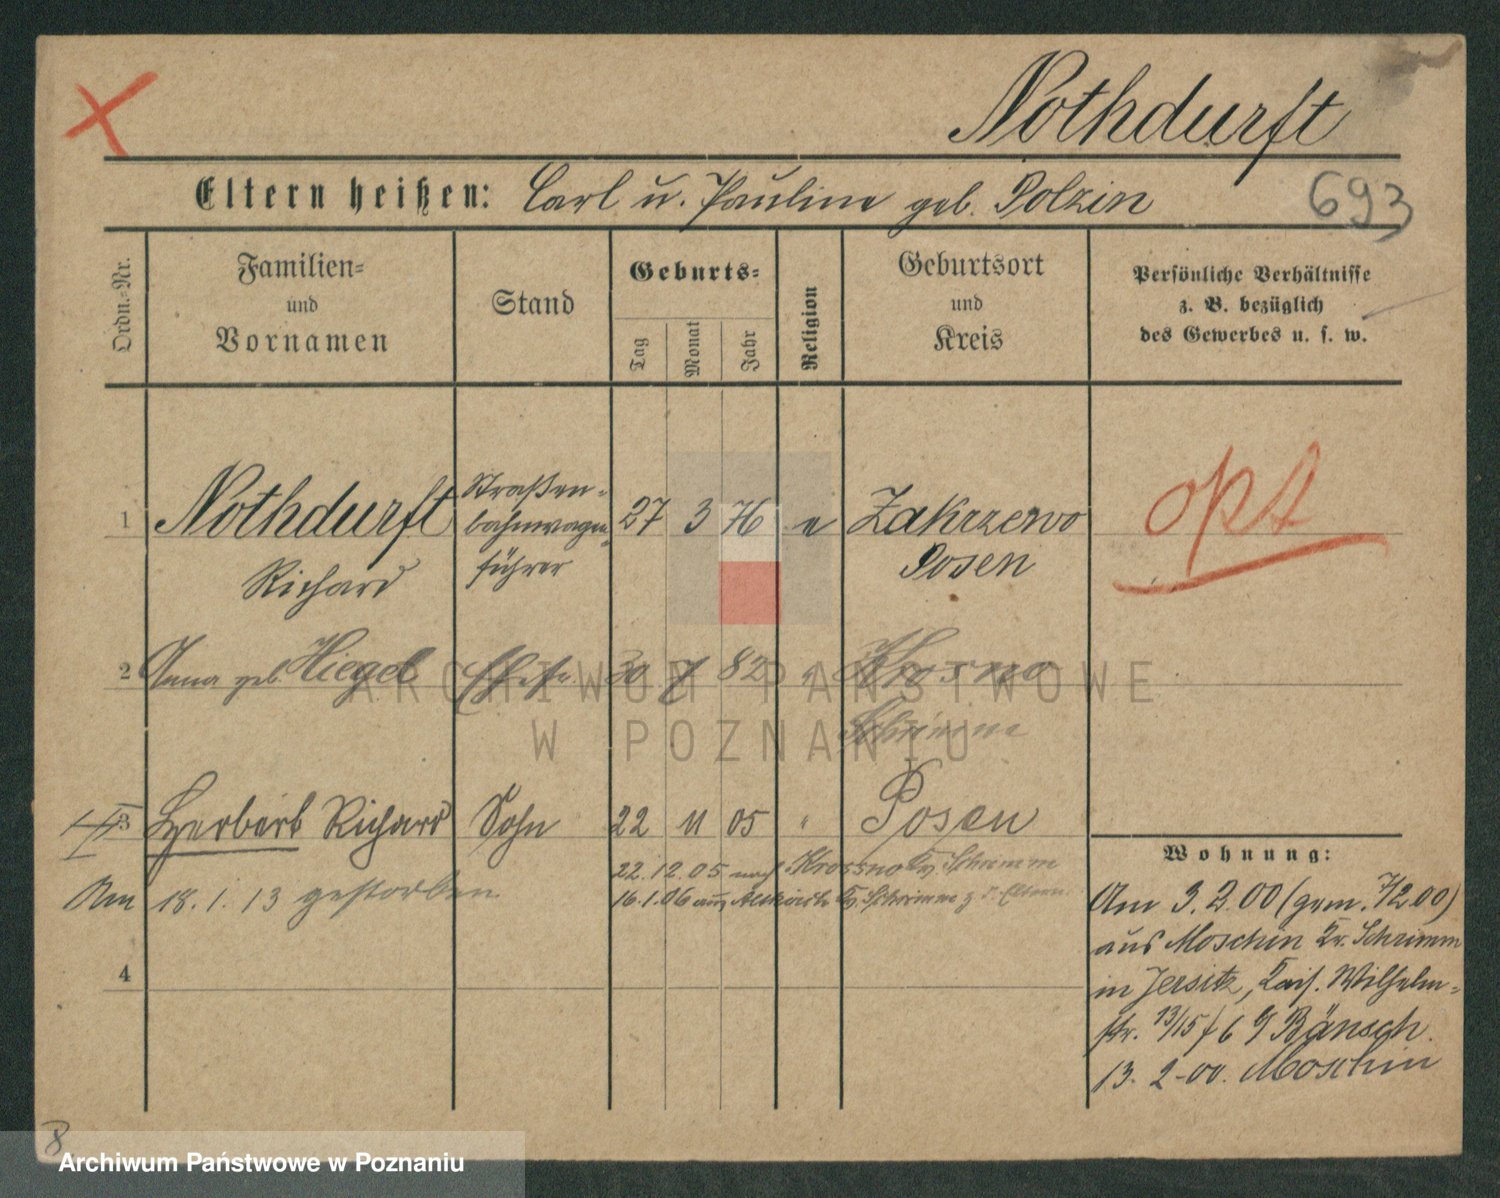 Nothdurft
Eltern heißen: Carl u. Pauline geb. Polzin
693
Ordn.-Nr.
Familien-
und
Vornamen
Stand
Geburts-
Tag
Monat
Jahr
Religion
Geburtsort
und
Kreis
Persönliche Verhältnisse
z. B. bezüglich
des Gewerbes u. s. w.
1 Nothdurft Straßen- 27 3 76 e Zakrzewo
Richard bahnwagen- Posen
führer
opt
2 Anna geb. Hiegel Ehefr. 30 7 82 " Krosno
Schrimm
3 Herbert Richard Sohn 22 11 05 " Posen
22.12.05 nach Krossno Kr. Schrimm
Am 18.1.13 gestorben
16.1.06 aus Kr. Schrimm z. d. Eltern
4
Wohnung:
Am 3.2.00 (gem. 7/2.00)
aus Moschin Kr. Schrimm
in Jersitz, Kais. Wilhelm-
str. 13/15 b/ Bänsch.
13. 2-00. Moschin
ARCHIWUM PAŃSTWOWE
W POZNANIU
8
Archiwum Państwowe w Poznaniu